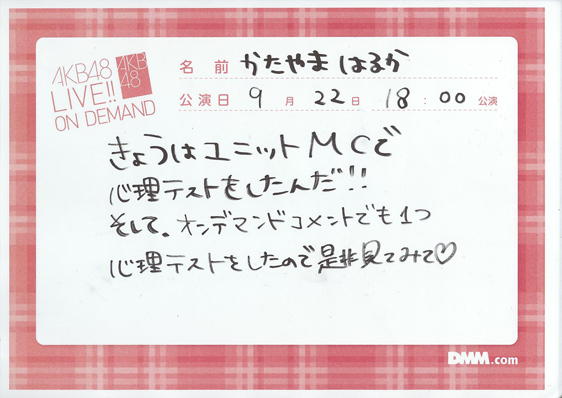 AKB48
LIVE!!
ON DEMAND
AKB
48
名前 かたやま はるか
公演日 9月 22日 18:00 公演
きょうはユニットMCで
心理テストをしたんだ!!
そして、オンデマンドコメントでも1つ
心理テストをしたので是非見てみて♡
DMM.com